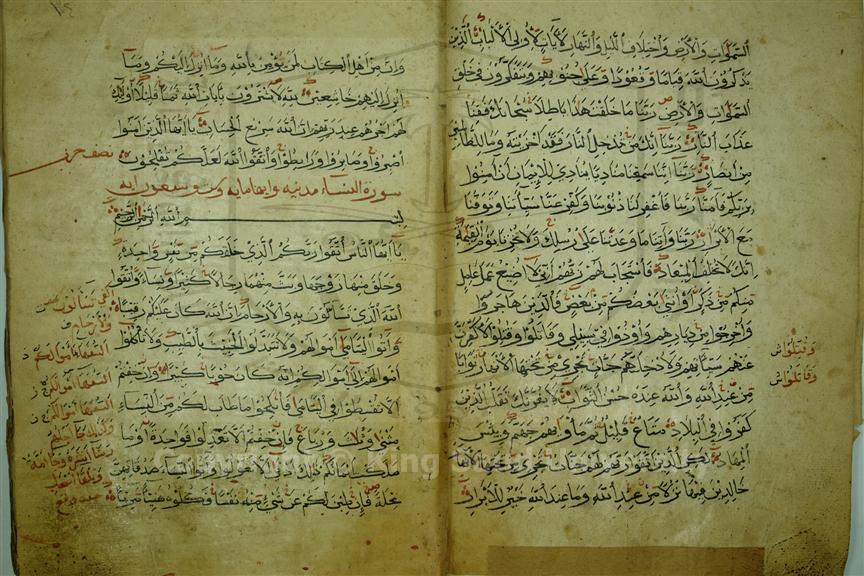 السموات والأرض واختلاف الليل والنهار لآيات لأولي الألباب الذين
يذكرون الله قياما وقعودا وعلى جنوبهم ويتفكرون في خلق
السموات والأرض ربنا ما خلقت هذا باطلا سبحانك فقنا
عذاب النار ربنا إنك من تدخل النار فقد أخزيته وما للظالمين
من أنصار ربنا إننا سمعنا مناديا ينادي للإيمان أن آمنوا
بربكم فآمنا ربنا فاغفر لنا ذنوبنا وكفر عنا سيآتنا وتوفنا
مع الأبرار ربنا وآتنا ما وعدتنا على رسلك ولا تخزنا يوم القيمة
إنك لا تخلف الميعاد فاستجاب لهم ربهم أني لا أضيع عمل عامل
منكم من ذكر أو أنثى بعضكم من بعض فالذين هاجروا
وأخرجوا من ديارهم وأوذوا في سبيلي وقاتلوا وقتلوا لأكفرن
عنهم سيآتهم ولأدخلنهم جنات تجري من تحتها الأنهار ثوابا
من عند الله والله عنده حسن الثواب لا يغرنك تقلب الذين
كفروا في البلاد متاع قليل ثم مأواهم جهنم وبئس
المهاد لكن الذين اتقوا ربهم لهم جنات تجري من تحتها الأنهار
خالدين فيها نزلا من عند الله وما عند الله خير للأبرار
وقتلوا
وقاتلوا
وإن من أهل الكتاب لمن يؤمن بالله وما أنزل إليكم وما
أنزل إليهم خاشعين لله لا يشترون بآيات الله ثمنا قليلا أولئك
لهم أجرهم عند ربهم إن الله سريع الحساب يا أيها الذين آمنوا
اصبروا وصابروا ورابطوا واتقوا الله لعلكم تفلحون
نصف حزب
سورة النساء مدنية وآيها مايه وست وسبعون آية
بسم الله الرحمن الرحيم
يا أيها الناس اتقوا ربكم الذي خلقكم من نفس واحدة
وخلق منها زوجها وبث منهما رجالا كثيرا ونساء واتقوا
الله الذي تساءلون به والأرحام إن الله كان عليكم رقيبا
وآتوا اليتامى أموالهم ولا تتبدلوا الخبيث بالطيب ولا تأكلوا
أموالهم إلى أموالكم إنه كان حوبا كبيرا وإن خفتم
ألا تقسطوا في اليتامى فانكحوا ما طاب لكم من النساء
مثنى وثلث ورباع فإن خفتم ألا تعدلوا فواحدة أو ما
ملكت أيمانكم ذلك أدنى ألا تعولوا وآتوا النساء صدقاتهن
نحلة فإن طبن لكم عن شيء منه نفسا فكلوه هنيئا مريئا
تساءلون
والأرحام
السفهاء أموالكم
Copyright © King